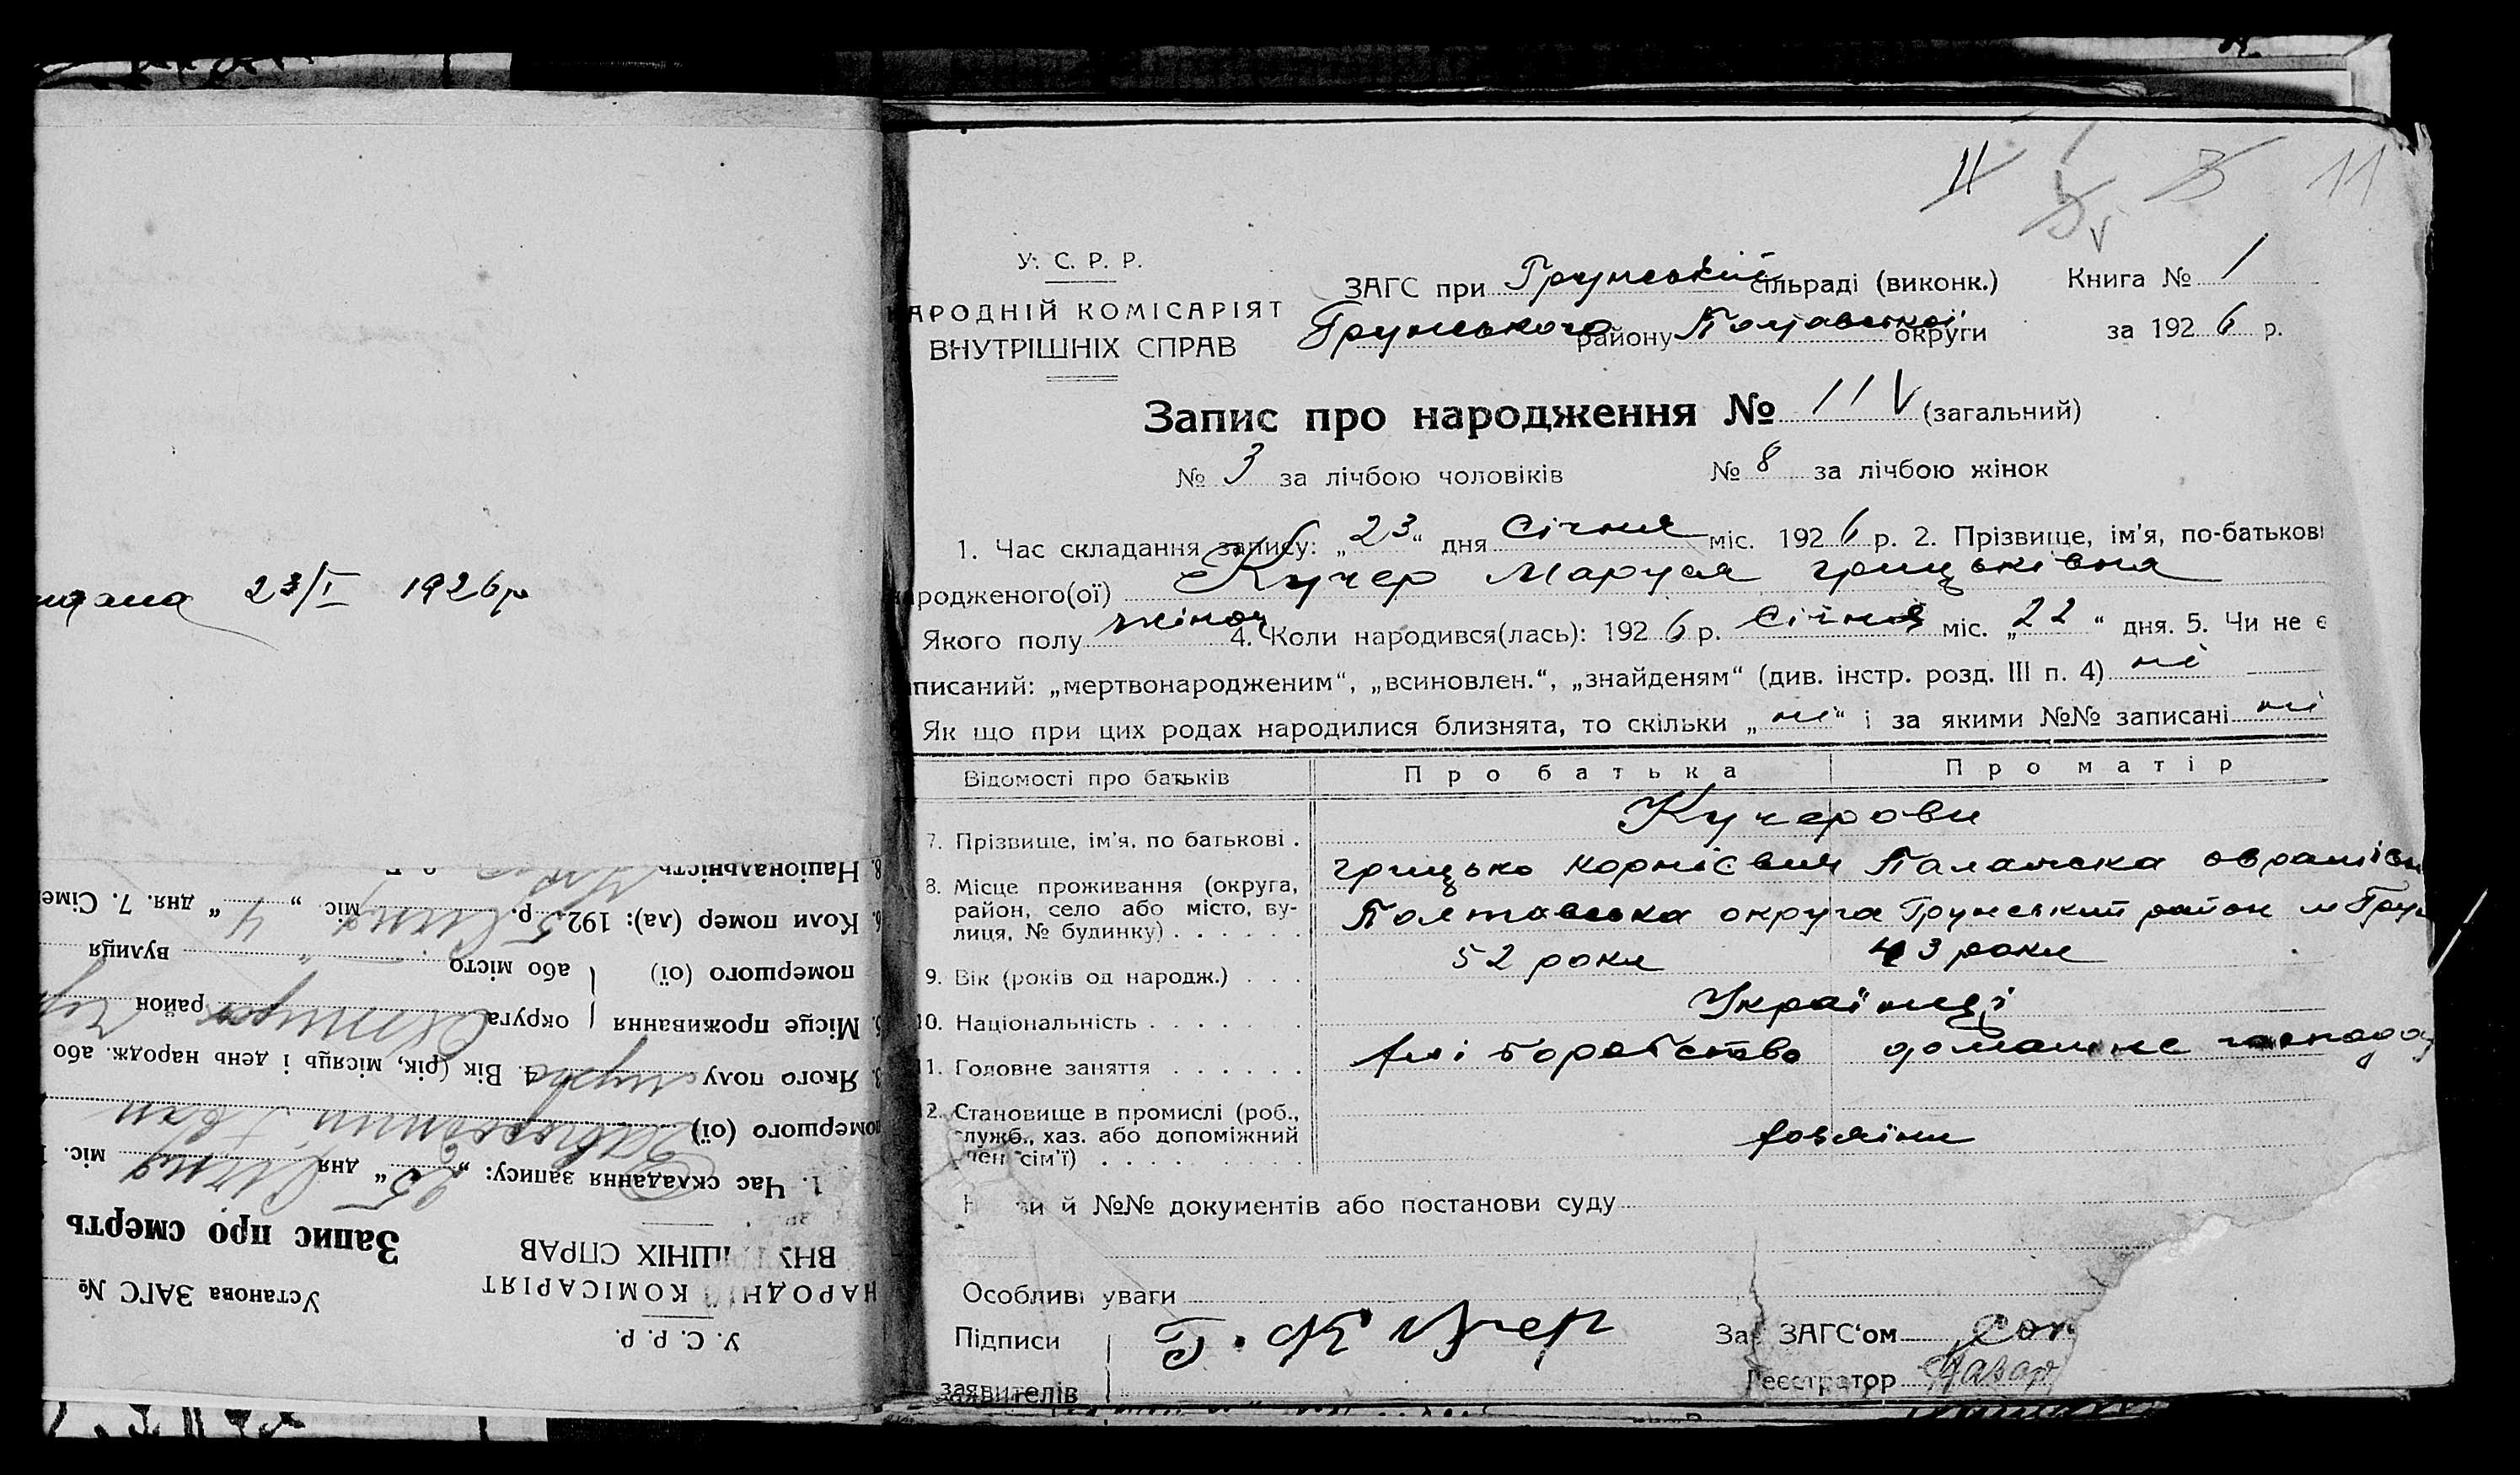 11 11
У. С. Р. Р.
АРОДНІЙ КОМІСАРІЯТ
ВНУТРІШНІХ СПРАВ
ЗАГС при Грунській сільраді (виконк.) Книга № 1
Грунського району Полтавської округи за 1926 р.
Запис про народження № 11 V (загальний)
№ 3 за лічбою чоловіків № 8 за лічбою жінок
1. Час складання запису: „23“ дня Січня міс. 1926 р. 2. Прізвище, ім'я, по-батькові
родженого(ої) Кучер Маруся грицьківна
Якого полу жіноч 4. Коли народився(лась): 1926 р. Січня міс. „22“ дня. 5. Чи не є
писаний: „мертвонародженим“, „всиновлен.“, „знайденям“ (див. інстр. розд. III п. 4) ні
Як що при цих родах народилися близнята, то скільки „ні“ і за якими №№ записані ні
Відомості про батьків Про батька Про матір
Кучерови
7. Прізвище, ім'я, по батькові . грицько корнієвич Палажка
8. Місце проживання (округа,
район, село або місто, ву-
лиця, № будинку) Полтавська округа Грунський район м Грун
9. Вік (років од народж.) 52 роки 43 роки
10. Національність Українці
11. Головне заняття хліборобство домашнє
12. Становище в промислі (роб.,
служб., хаз. або допоміжний
член сім'ї) хозяїни
й №№ документів або постанови суду
Особливі уваги
Підписи Г. Кучер Зав ЗАГС'ом
заявителів Реєстратор Назар
23/I 1926р
У. С. Р. Р.
НАРОДНІЙ КОМІСАРІЯТ Установа ЗАГС №
ВНУТРІШНІХ СПРАВ Запис про смерть
1. Час складання запису: „25“ дня Січня міс.
помершого (ої) Іван
3. Якого полу 4. Вік (рік, місяць і день народж. або
5. Місце проживання округа район
помершого (ої) або місто вулиця
6. Коли помер (ла): 1925 р. Січня міс „4“ дня. 7. Сімей
8. Національність